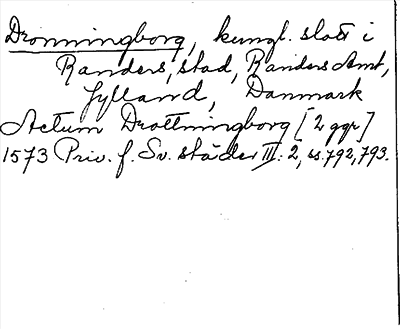 Dronningborg, kungl. slott i
Randers, stad, Randers Amt,
Jylland, Danmark
Actum Drottningborg [2 ggr]
1573 Priv. f. Sv. städer III: 2, ss. 792, 793.